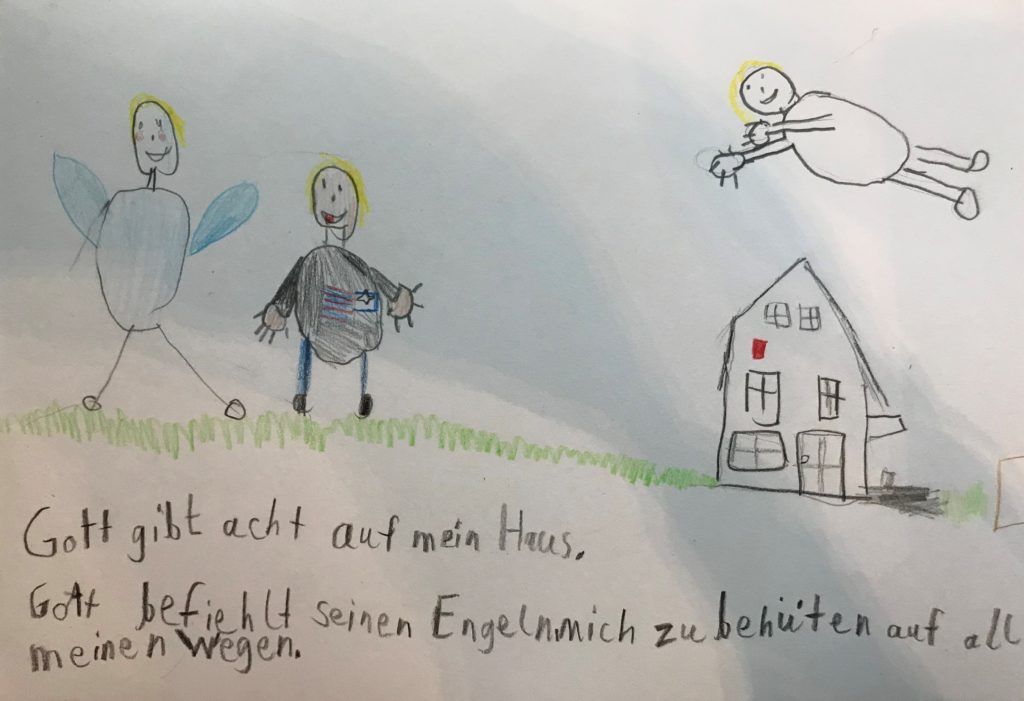 Gott gibt acht auf mein Haus.
Gott befiehlt seinen Engeln mich zu behüten auf all
meinen Wegen.